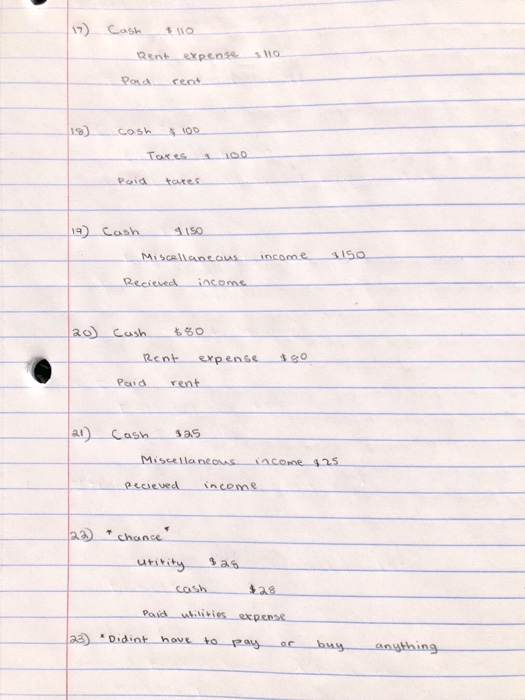 17) Cash $110
Rent expense $110
Paid rent
18) cash $100
Taxes $100
Paid taxes
19) Cash $150
Miscellaneous income $150
Recieved income
20) Cash $80
Rent expense $80
Paid rent
21) Cash $25
Miscellaneous income $25
Recieved income
22) *chance*
utitity $28
cash $28
Paid utilities expense
23) *Didint have to pay or buy anything